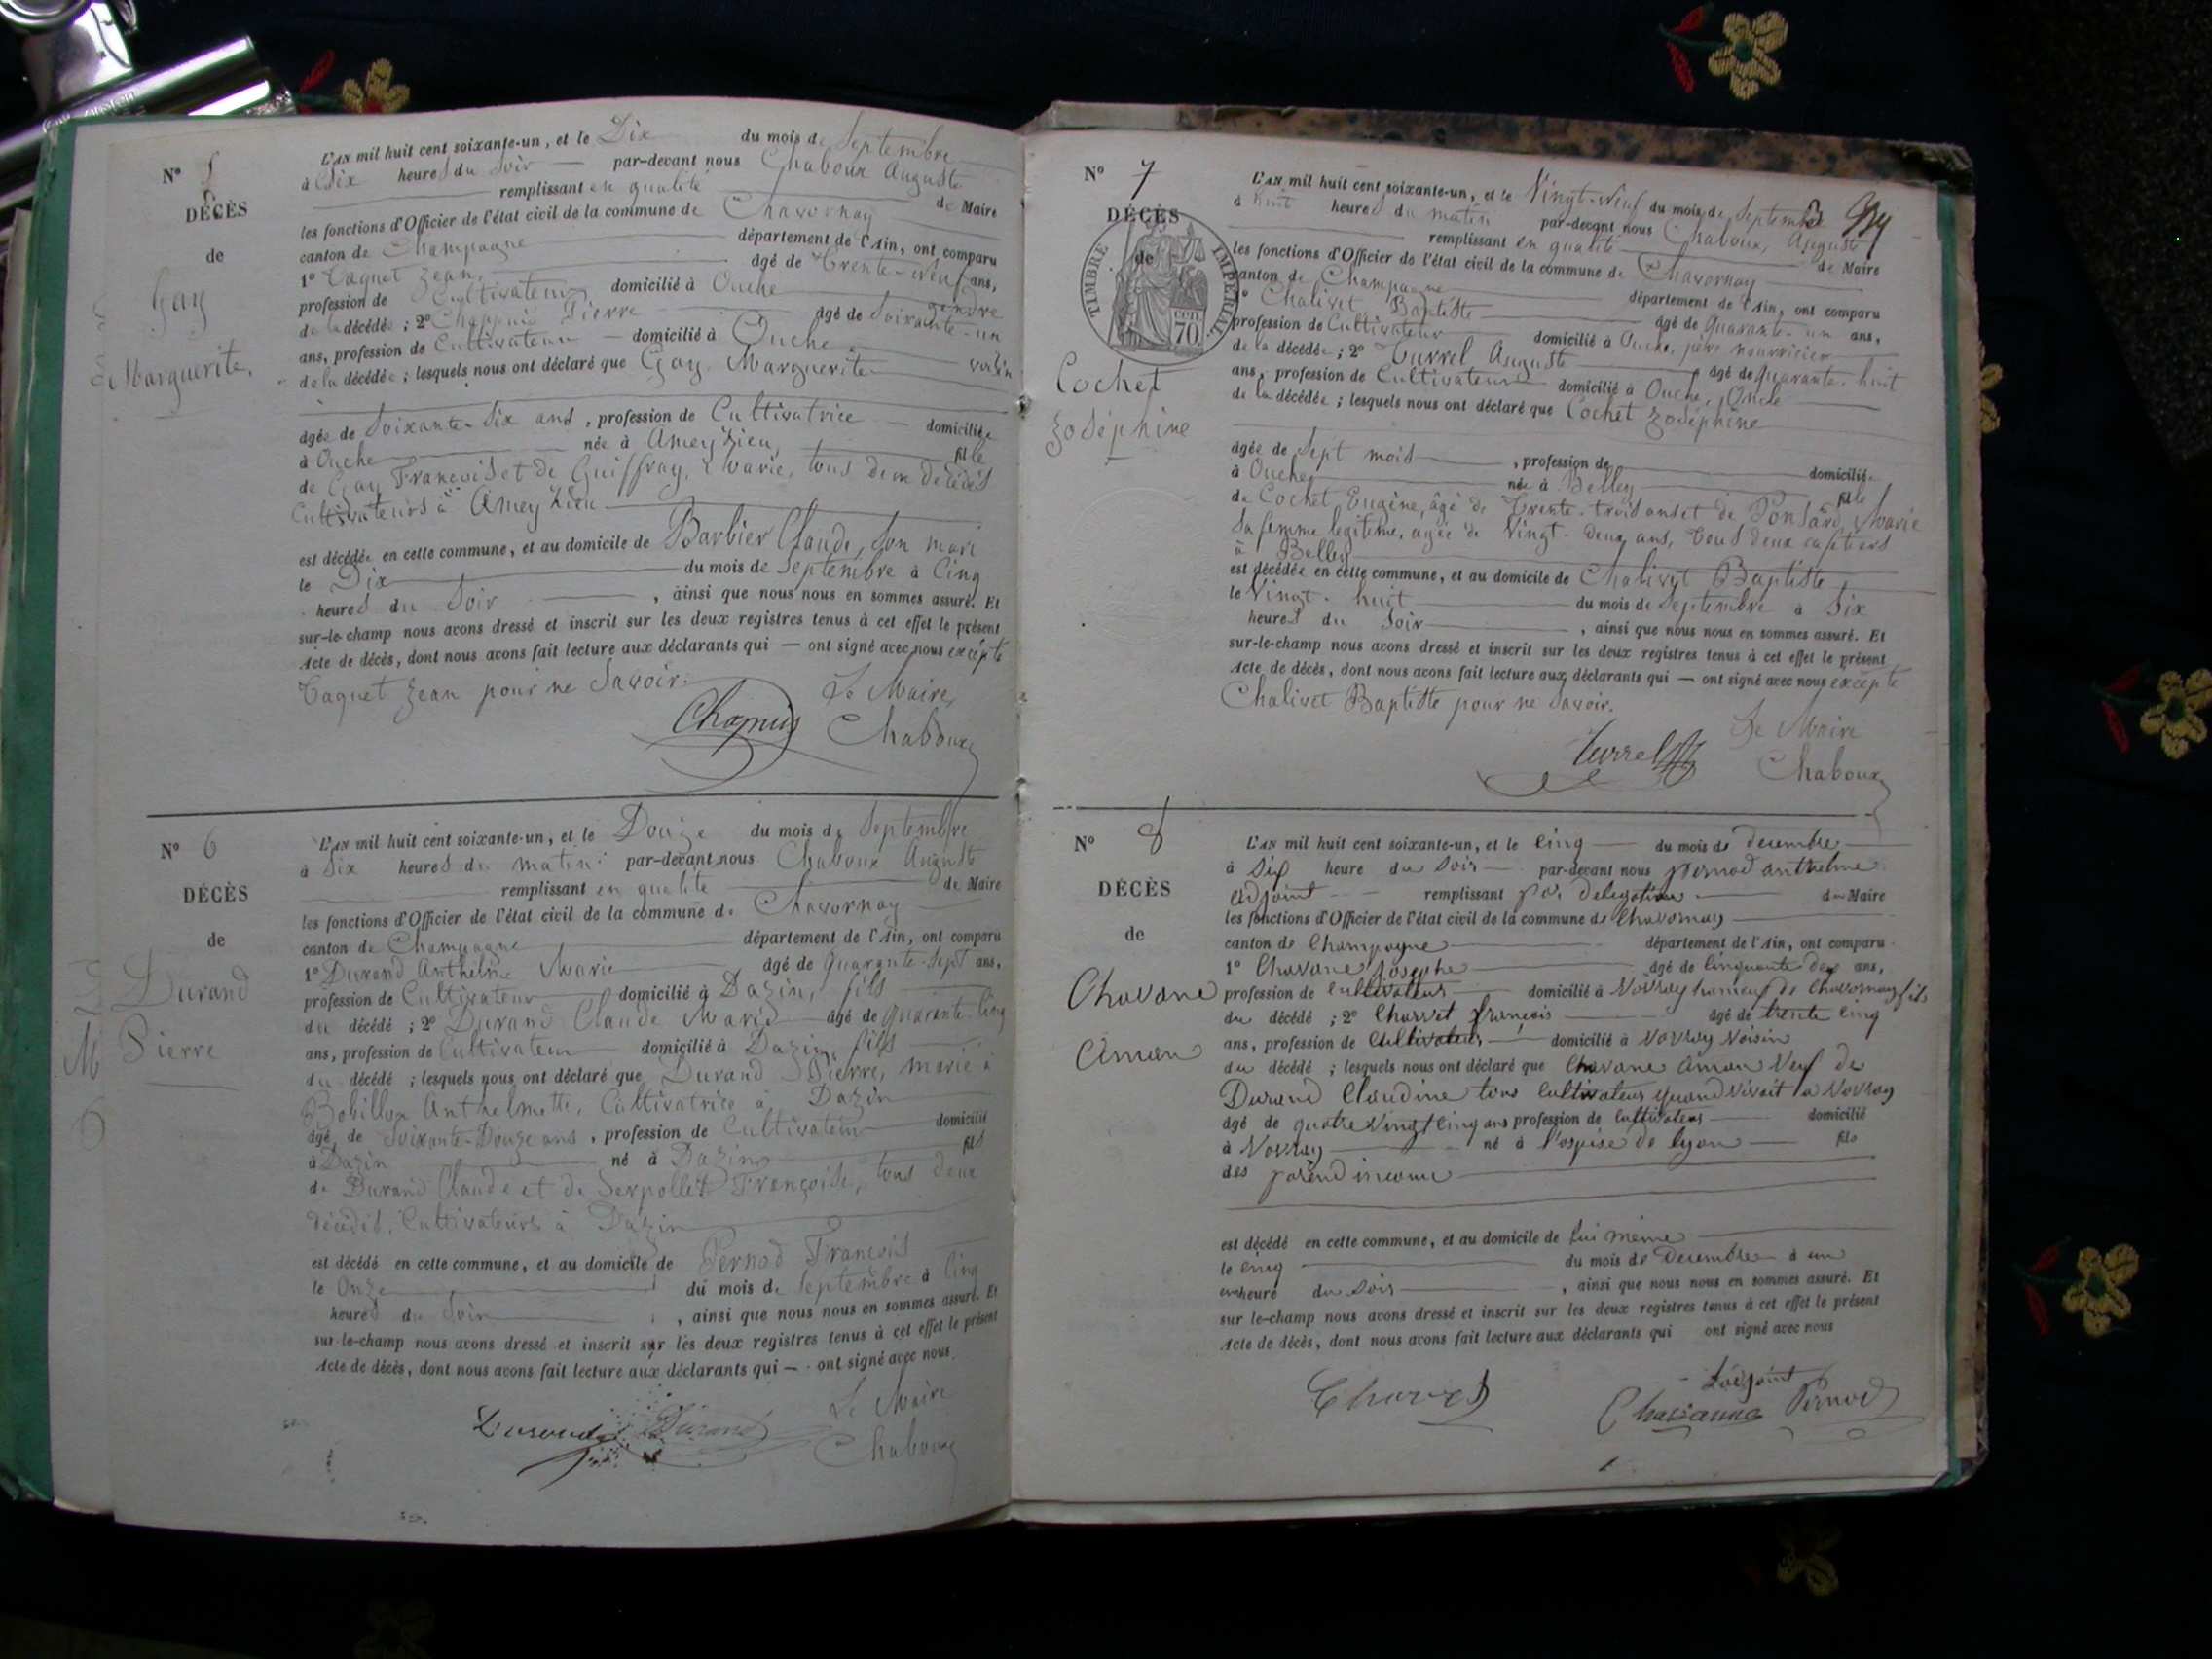 N° 5
DÉCÈS
de
Gay
Marguerite.
L'AN mil huit cent soixante-un, et le Dix du mois de Septembre
à Six heures du Soir par-devant nous Chaboux Auguste
remplissant en qualité de Maire
les fonctions d'Officier de l'état civil de la commune de Chavornay
canton de Champagne département de l'Ain, ont comparu
1° Taquet Jean, âgé de Trente-neuf ans,
profession de Cultivateur domicilié à Ouche gendre
de la décédée ; 2° Pierre âgé de Soixante-un
ans, profession de Cultivateur domicilié à Ouche voisin
de la décédée ; lesquels nous ont déclaré que Gay Marguerite
âgée de Soixante-Six ans, profession de Cultivatrice domiciliée
à Ouche née à Ameyzieu, fille
de Gay François et de Guiffray, Marie, tous deux décédés
Cultivateurs à Ameyzieu
est décédée en cette commune, et au domicile de Barbier Claude, Son mari
le Dix du mois de Septembre à Cinq
heures du Soir, ainsi que nous nous en sommes assuré. Et
sur-le-champ nous avons dressé et inscrit sur les deux registres tenus à cet effet le présent
Acte de décès, dont nous avons fait lecture aux déclarants qui — ont signé avec nous excepté
Taquet Jean pour ne Savoir.
Le Maire,
Chapuis Chaboux
N° 6
DÉCÈS
de
Durand
Pierre
L'AN mil huit cent soixante-un, et le Douze du mois de Septembre
à Six heures du matin par-devant nous Chaboux Auguste
remplissant en qualité de Maire
les fonctions d'Officier de l'état civil de la commune de Chavornay
canton de Champagne département de l'Ain, ont comparu
1° Durand Anthelme Marie âgé de Quarante-Sept ans,
profession de Cultivateur domicilié à Dazin, fils
du décédé ; 2° Durand Claude Marie âgé de Quarante-Cinq
ans, profession de Cultivateur domicilié à Dazin, fils
du décédé ; lesquels nous ont déclaré que Durand Pierre, marié à
Bobillon Anthelmette, Cultivatrice à Dazin
âgé de Soixante-Douze ans, profession de Cultivateur domicilié
à Dazin né à Dazin fils
de Durand Claude et de Serpollet Françoise, tous deux
décédés, Cultivateurs à Dazin
est décédé en cette commune, et au domicile de Pernod François
le Onze du mois de Septembre à Cinq
heures du Soir, ainsi que nous nous en sommes assuré. Et
sur-le-champ nous avons dressé et inscrit sur les deux registres tenus à cet effet le présent
Acte de décès, dont nous avons fait lecture aux déclarants qui — ont signé avec nous.
Le Maire
Durand Durand Chaboux
N° 7
DÉCÈS
de
TIMBRE IMPÉRIAL
70 CEN
Cochet
Joséphine
L'AN mil huit cent soixante-un, et le Vingt-Neuf du mois de Septembre
à huit heures du matin par-devant nous Chaboux, Auguste
remplissant en qualité de Maire
les fonctions d'Officier de l'état civil de la commune de Chavornay
canton de Champagne département de l'Ain, ont comparu
1° Chalivet Baptiste âgé de Quarante-un ans,
profession de Cultivateur domicilié à Ouche, père nourricier
de la décédée ; 2° Turrel Auguste âgé de Quarante-huit
ans, profession de Cultivateur domicilié à Ouche, Oncle
de la décédée ; lesquels nous ont déclaré que Cochet Joséphine
âgée de Sept mois, profession de domiciliée
à Ouche née à Belley fille
de Cochet Eugène, âgé de Trente-trois ans et de Ponsard, Marie
Sa femme légitime, agée de Vingt-deux ans, tous deux cafetiers
à Belley
est décédée en cette commune, et au domicile de Chalivet Baptiste
le Vingt-huit du mois de Septembre à Six
heures du Soir, ainsi que nous nous en sommes assuré. Et
sur-le-champ nous avons dressé et inscrit sur les deux registres tenus à cet effet le présent
Acte de décès, dont nous avons fait lecture aux déclarants qui — ont signé avec nous excepté
Chalivet Baptiste pour ne Savoir.
Le Maire
Turrel Chaboux
N° 8
DÉCÈS
de
Chavane
Aman
L'AN mil huit cent soixante-un, et le cinq du mois de decembre
à Six heure du Soir par-devant nous pernod anthelme
adjoint remplissant par delegation du Maire
les fonctions d'Officier de l'état civil de la commune de Chavornay
canton de Champagne département de l'Ain, ont comparu
1° Chavane Josephe âgé de cinquante deux ans,
profession de cultivateur domicilié à Vovray hameau de Chavornay fils
du décédé ; 2° Charvet françois âgé de trente cinq
ans, profession de Cultivateur domicilié à Vovray Voisin
du décédé ; lesquels nous ont déclaré que Chavane aman Veuf de
Durand Claudine tous cultivateurs quand vivait a Vovray
âgé de quatre Vingt cinq ans profession de cultivateur domicilié
à Vovray né à l'ospise de lyon fils
des parend inconu
est décédé en cette commune, et au domicile de lui même
le cinq du mois de Decembre à une
heure du Soir, ainsi que nous nous en sommes assuré. Et
sur le-champ nous avons dressé et inscrit sur les deux registres tenus à cet effet le présent
Acte de décès, dont nous avons fait lecture aux déclarants qui ont signé avec nous
L'adjoint
Charvet Chavanne Pernod